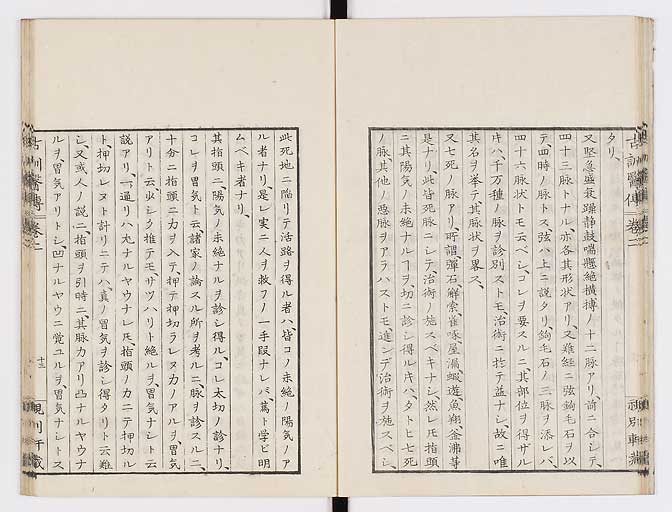 タリ、
又堅急盛衰躁静鼓喘懸絶横搏ノ十二脉アリ、前ニ合シテ、
四十三脉トナル、亦各其形状アリ、又難経ニ弦鉤毛石ヲ以
テ四時ノ脉トス、弦ハ上ニ説タリ、鉤毛石ノ三脉ヲ添レバ、
四十六脉状トモ云ベシ、コレヲ要スルニ、其部位ヲ得ザル
キハ、千万種ノ脉ヲ診別ストモ、治術ニ於テ益ナシ、故ニ唯
其名ヲ挙テ、其脉状ヲ畧ス、
又七死ノ脉アリ、所謂弾石解索雀啄屋漏蝦遊魚翔釜沸等
是ナリ、此皆死脉ニシテ、治術ノ施スベキナシ、然レ𪜈指頭
ニ其陽気ノ未絶ナルヿヲ、切ニ診シ得ルキハ、タトヒ七死
ノ脉、其他ノ悪脉ヲアラハストモ、進ンデ治術ヲ施スベシ、
此死地ニ陥リテ活路ヲ得ル者ハ、皆コノ未絶ノ陽気ノア
ル者ナリ、是レ実ニ人ヲ救フノ一手段ナレバ、篤ト学ビ明
ムベキ者ナリ、
其指頭ニ陽気ノ未絶ナルヲ診シ得ル、コレ太切ノ診ナリ、
コレヲ胃気ト云、諸家ノ論スル所ヲ考ルニ、脉ヲ診スルニ、
十分ニ指頭ニ力ヲ入テ、押テ押切ラレヌ力ノアルヲ、胃気
アリト云、少シク推テモ、サツハリト絶ルヲ、胃気ナシト云
説アリ、一通リハ尤ナルヤウナレ𪜈、指頭ノ力ニテ押切ル
ト、押切レヌト計リニテハ、真ノ胃気ヲ診シ得タリト云難
シ、又或人ノ説ニ、指頭ヲ引時ニ、其脉力アリ凸ナルヤウナ
ルヲ、胃気アリトシ、凹ナルヤウニ覚ユルヲ、胃気ナシトス
古訓醫傳
巻二
古訓醫傳
巻二
十三